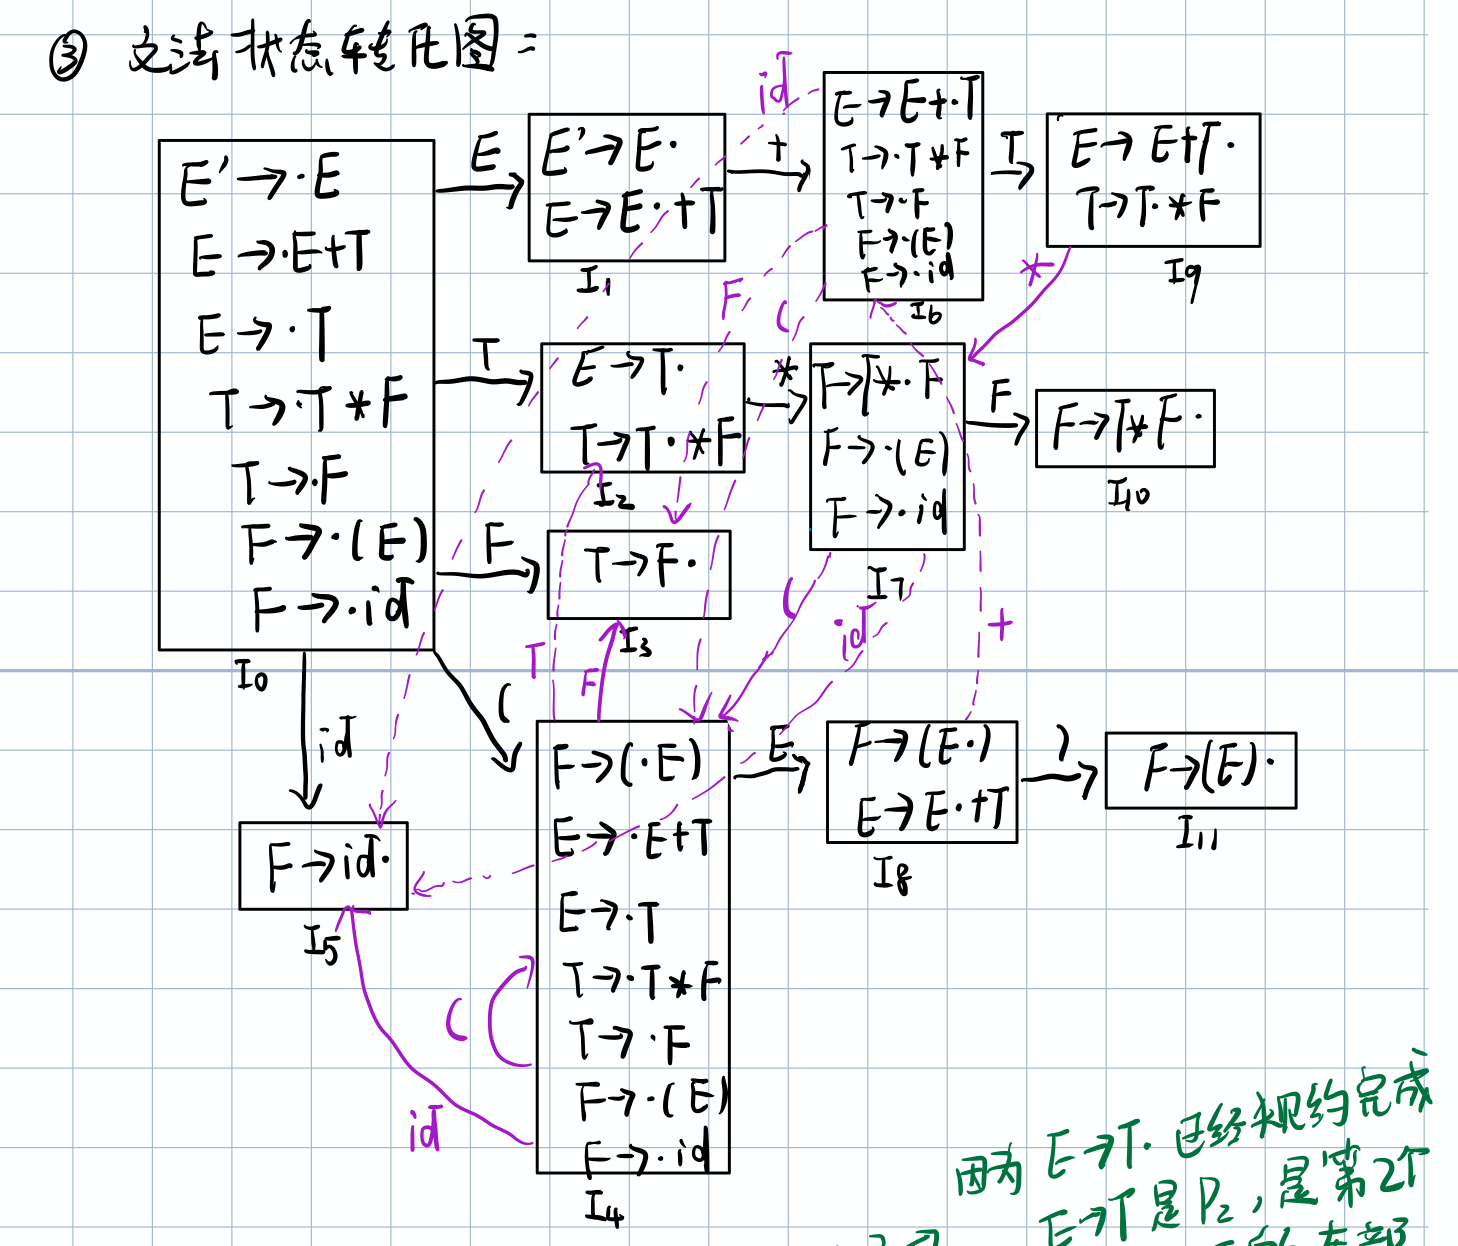 ③ 文法状态转化图:
E'→·E
E→·E+T
E→·T
T→·T*F
T→·F
F→·(E)
F→·id
I0
E
E'→E·
E→E·+T
I1
+
id
E→E+·T
T→·T*F
T→·F
F→·(E)
F→·id
I6
T
E→E+T·
T→T·*F
I9
*
T
E→T·
T→T·*F
I2
*
F
(
T→T*·F
F→·(E)
F→·id
I7
F
F→T*F·
I10
F
T→F·
I3
T
F
(
id
+
id
(
F→id·
I5
F→(·E)
E→·E+T
E→·T
T→·T*F
T→·F
F→·(E)
F→·id
I4
(
id
E
F→(E·)
E→E·+T
I8
)
F→(E)·
I11
因为 E→T· 已经规约完成
E→T是P2,是第2个